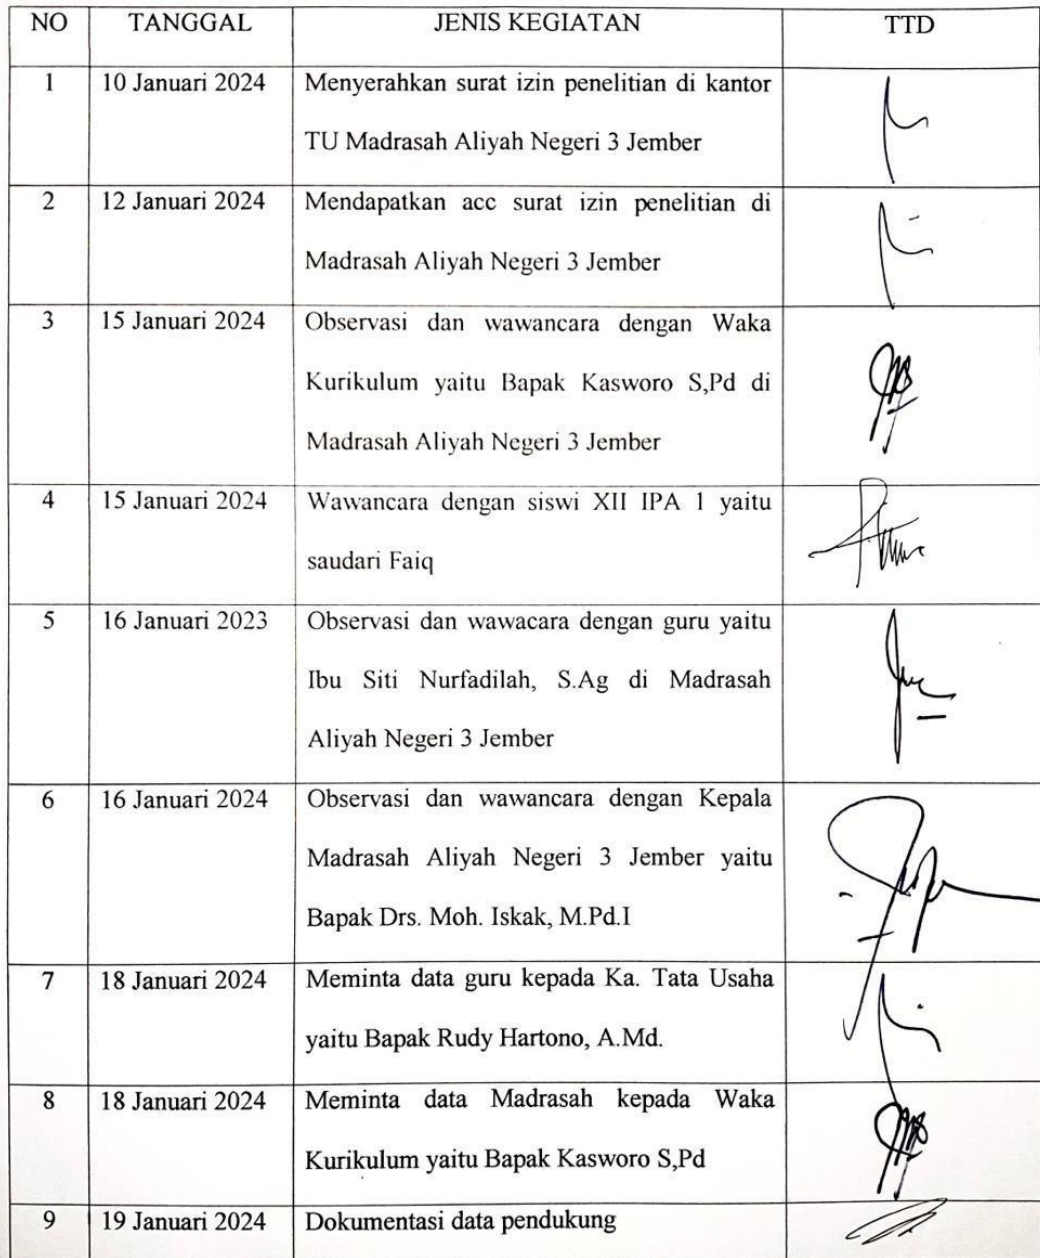 NO TANGGAL JENIS KEGIATAN TTD
1 10 Januari 2024 Menyerahkan surat izin penelitian di kantor
TU Madrasah Aliyah Negeri 3 Jember
2 12 Januari 2024 Mendapatkan acc surat izin penelitian di
Madrasah Aliyah Negeri 3 Jember
3 15 Januari 2024 Observasi dan wawancara dengan Waka
Kurikulum yaitu Bapak Kasworo S,Pd di
Madrasah Aliyah Negeri 3 Jember
4 15 Januari 2024 Wawancara dengan siswi XII IPA 1 yaitu
saudari Faiq
5 16 Januari 2023 Observasi dan wawacara dengan guru yaitu
Ibu Siti Nurfadilah, S.Ag di Madrasah
Aliyah Negeri 3 Jember
6 16 Januari 2024 Observasi dan wawancara dengan Kepala
Madrasah Aliyah Negeri 3 Jember yaitu
Bapak Drs. Moh. Iskak, M.Pd.I
7 18 Januari 2024 Meminta data guru kepada Ka. Tata Usaha
yaitu Bapak Rudy Hartono, A.Md.
8 18 Januari 2024 Meminta data Madrasah kepada Waka
Kurikulum yaitu Bapak Kasworo S,Pd
9 19 Januari 2024 Dokumentasi data pendukung